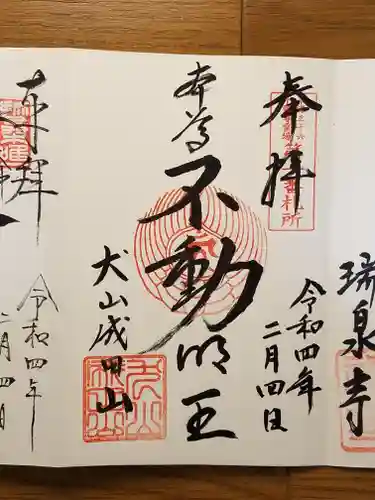 瑞泉寺
奉拝
令和四年
二月四日
本尊
不動明王
犬山成田山
奉拝
令和四年
二月四日